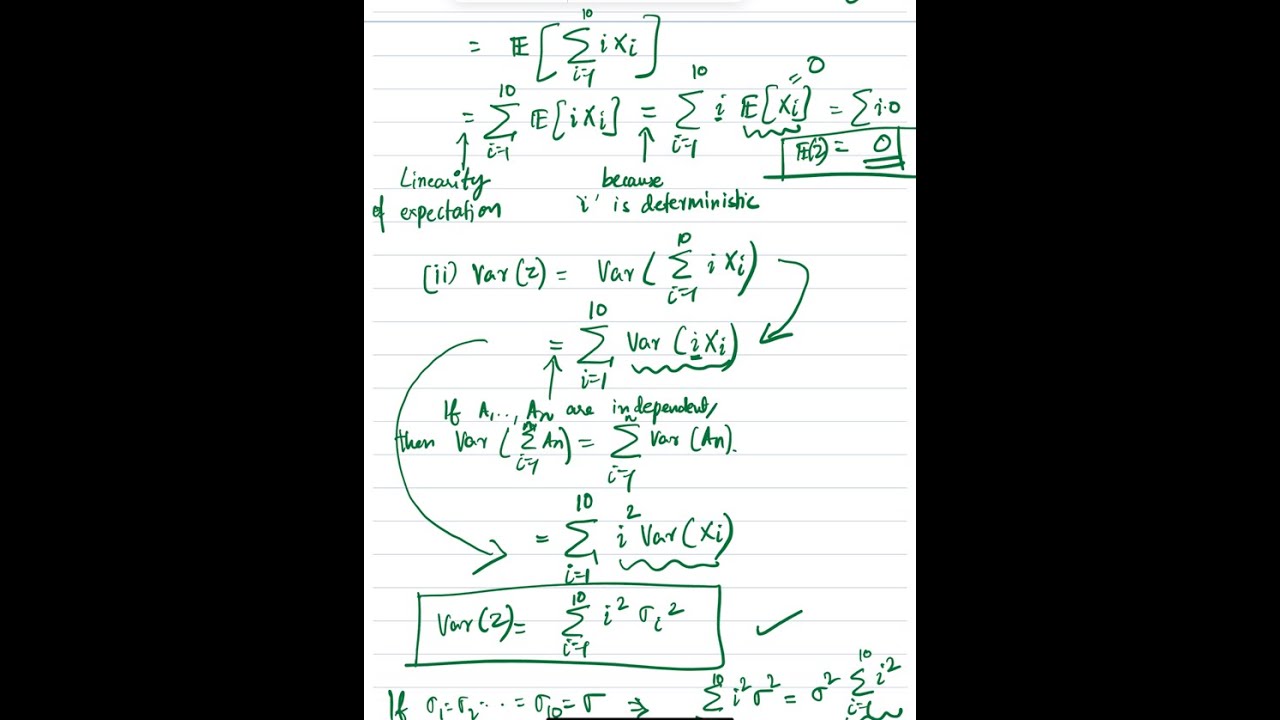 = 𝔼[∑_{i=1}^{10} i X_i]
= ∑_{i=1}^{10} 𝔼[i X_i] = ∑_{i=1}^{10} i 𝔼[X_i] = ∑ i·0
= 0
𝔼(z) = 0
Linearity of expectation
because 'i' is deterministic
(ii) Var(z) = Var(∑_{i=1}^{10} i X_i)
= ∑_{i=1}^{10} Var(i X_i)
If A_1, .., A_n are independent,
then Var(∑_{i=1}^{n} A_n) = ∑_{i=1}^{n} Var(A_n).
= ∑_{i=1}^{10} i² Var(X_i)
Var(z) = ∑_{i=1}^{10} i² σ_i²
If σ_1 = σ_2 ... = σ_10 = σ ⇒ ∑^{10} i² σ² = σ² ∑_{i=1}^{10} i²